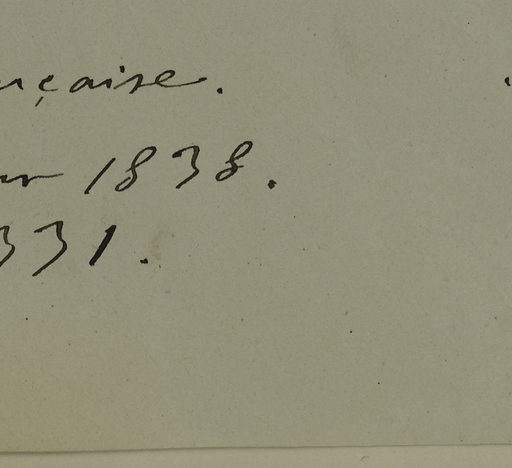 nçaise.
ur 1838.
331.